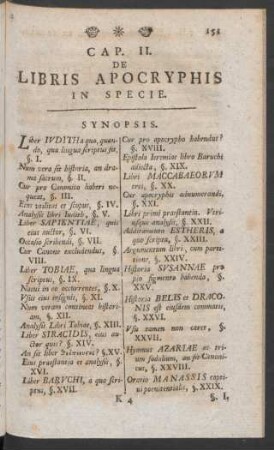 151
CAP. II.
DE
LIBRIS APOCRYPHIS
IN SPECIE.
SYNOPSIS.
Liber IVDITH a quo, quan-
do, qua lingua scriptus sit,
§. I.
Num vera sit historia, an dra-
ma sacrum, §. II.
Cur pro Canonico haberi ne-
queat, §. III.
Eius auctoritas et scopus, §. IV.
Analysis libri Iudith, §. V.
Liber SAPIENTIAE, quis
eius auctor, §. VI.
Occasio scribendi, §. VII.
Cur Canone excludendus, §.
VIII.
Liber TOBIAE, qua lingua
scriptus, §. IX.
Naeui in eo occurrentes, §. X.
Vsus eius insignis, §. XI.
Num veram contineat histori-
am, §. XII.
Analysis Libri Tobiae, §. XIII.
Liber SIRACIDIS, eius au-
ctor quis? §. XIV.
An sit liber §. XV.
Eius praestantia et analysis, §.
XVI.
Liber BARVCHI, a quo scri-
ptus, §. XVII.
Cur pro apocrypho habendus?
§. XVIII.
Epistola Ieremiae libro Baruchi
adiecta, §. XIX.
Libri MACCABAEORVM
tres, §. XX.
Cur apocryphis adnumerandi,
§. XXI.
Libri primi praestantia. Vtri-
usque analysis, §. XXII.
Additamenta ESTHERIS, a
quo scripta, §. XXIII.
Argumentum libri, cum parti-
tione, §. XXIV.
Historia SVSANNAE pro
figmento habenda, §.
XXV.
Historia BELIS et DRACO-
NIS est eiusdem commatis,
§. XXVI.
Vsu tamen non caret, §.
XXVII.
Hymnus AZARIAE ac tri-
um sodalium, an sit Canoni-
cus, §. XXVIII.
Oratio MANASSIS capti-
poenitentialis, §. XXIX.
K 4
§. I.